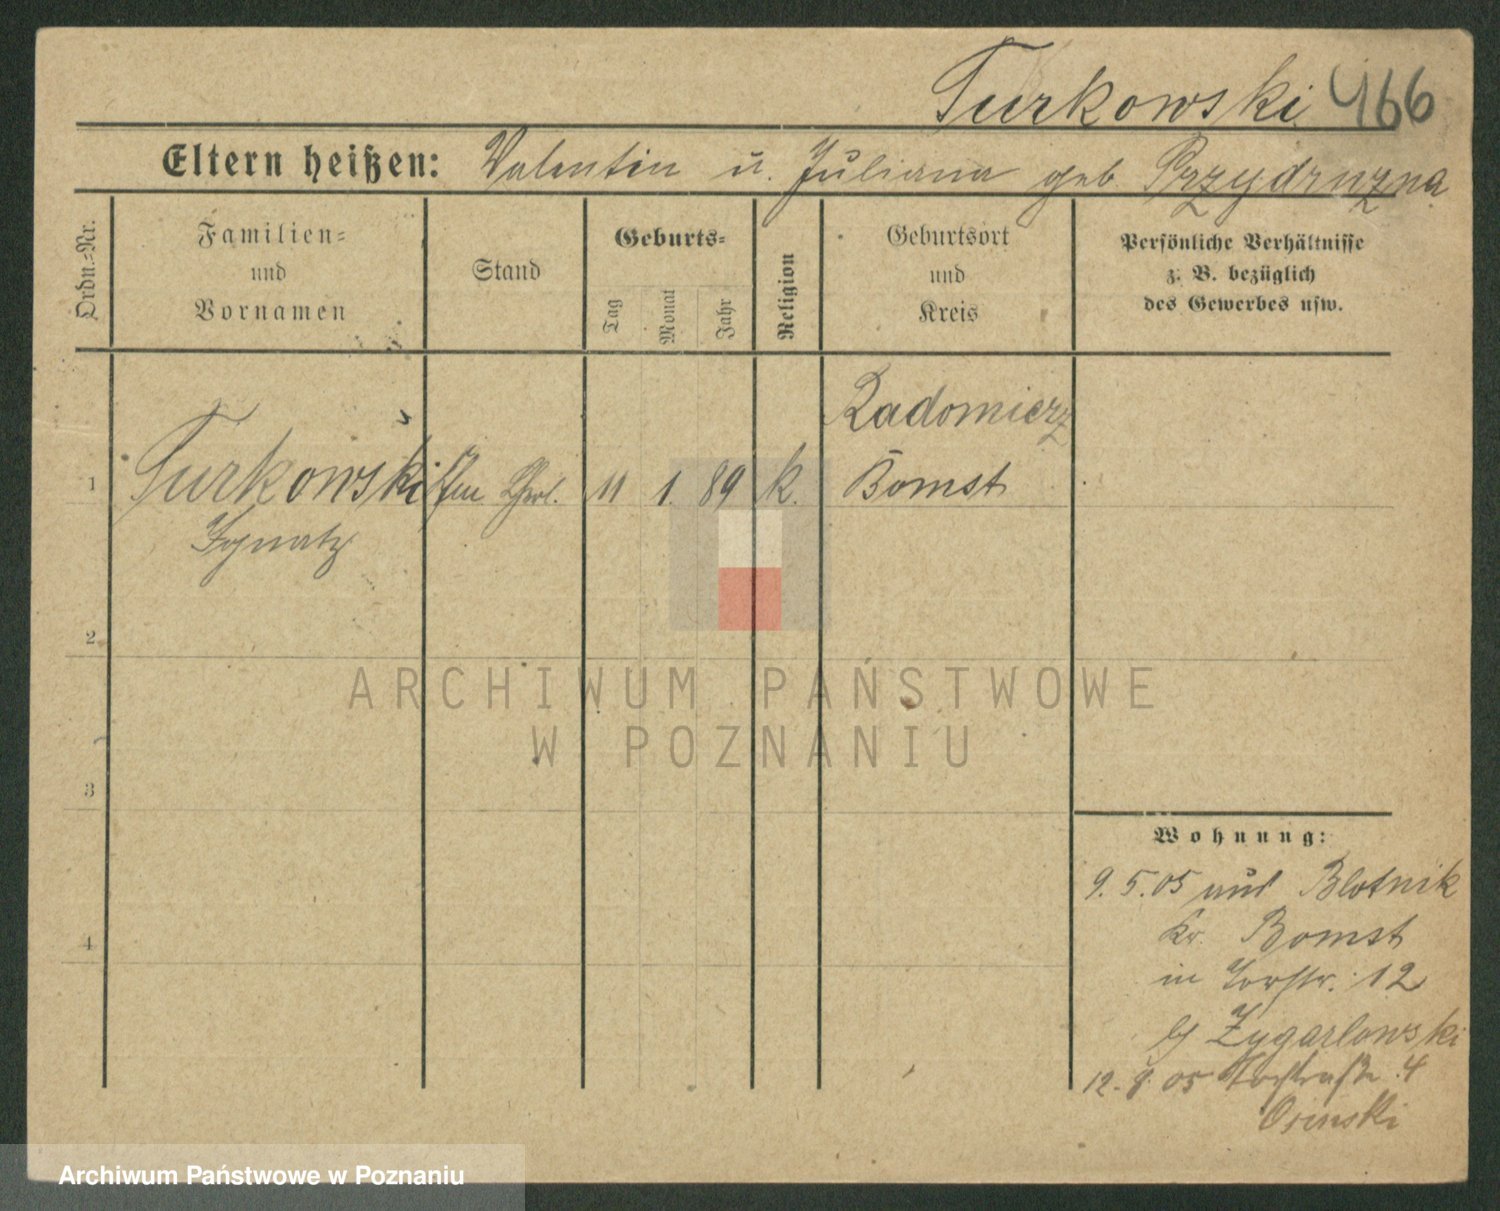 Turkowski 466
Eltern heißen: Valentin u. Juliana geb Przydrużna
Ordn.-Nr.
Familien-
und
Vornamen
Stand
Geburts-
Tag
Monat
Jahr
Religion
Geburtsort
und
Kreis
Persönliche Verhältnisse
z. B. bezüglich
des Gewerbes usw.
Radomierz
1 Turkowski 11 1. 89 k. Bomst
Ignatz
2
ARCHIWUM PAŃSTWOWE
W POZNANIU
3
Wohnung:
9. 5. 05 aus Blotnik
4
Kr. Bomst
in Torstr. 12
Zygarlowski
12. 9. 05 Torstraße 4
Orinski
Archiwum Państwowe w Poznaniu